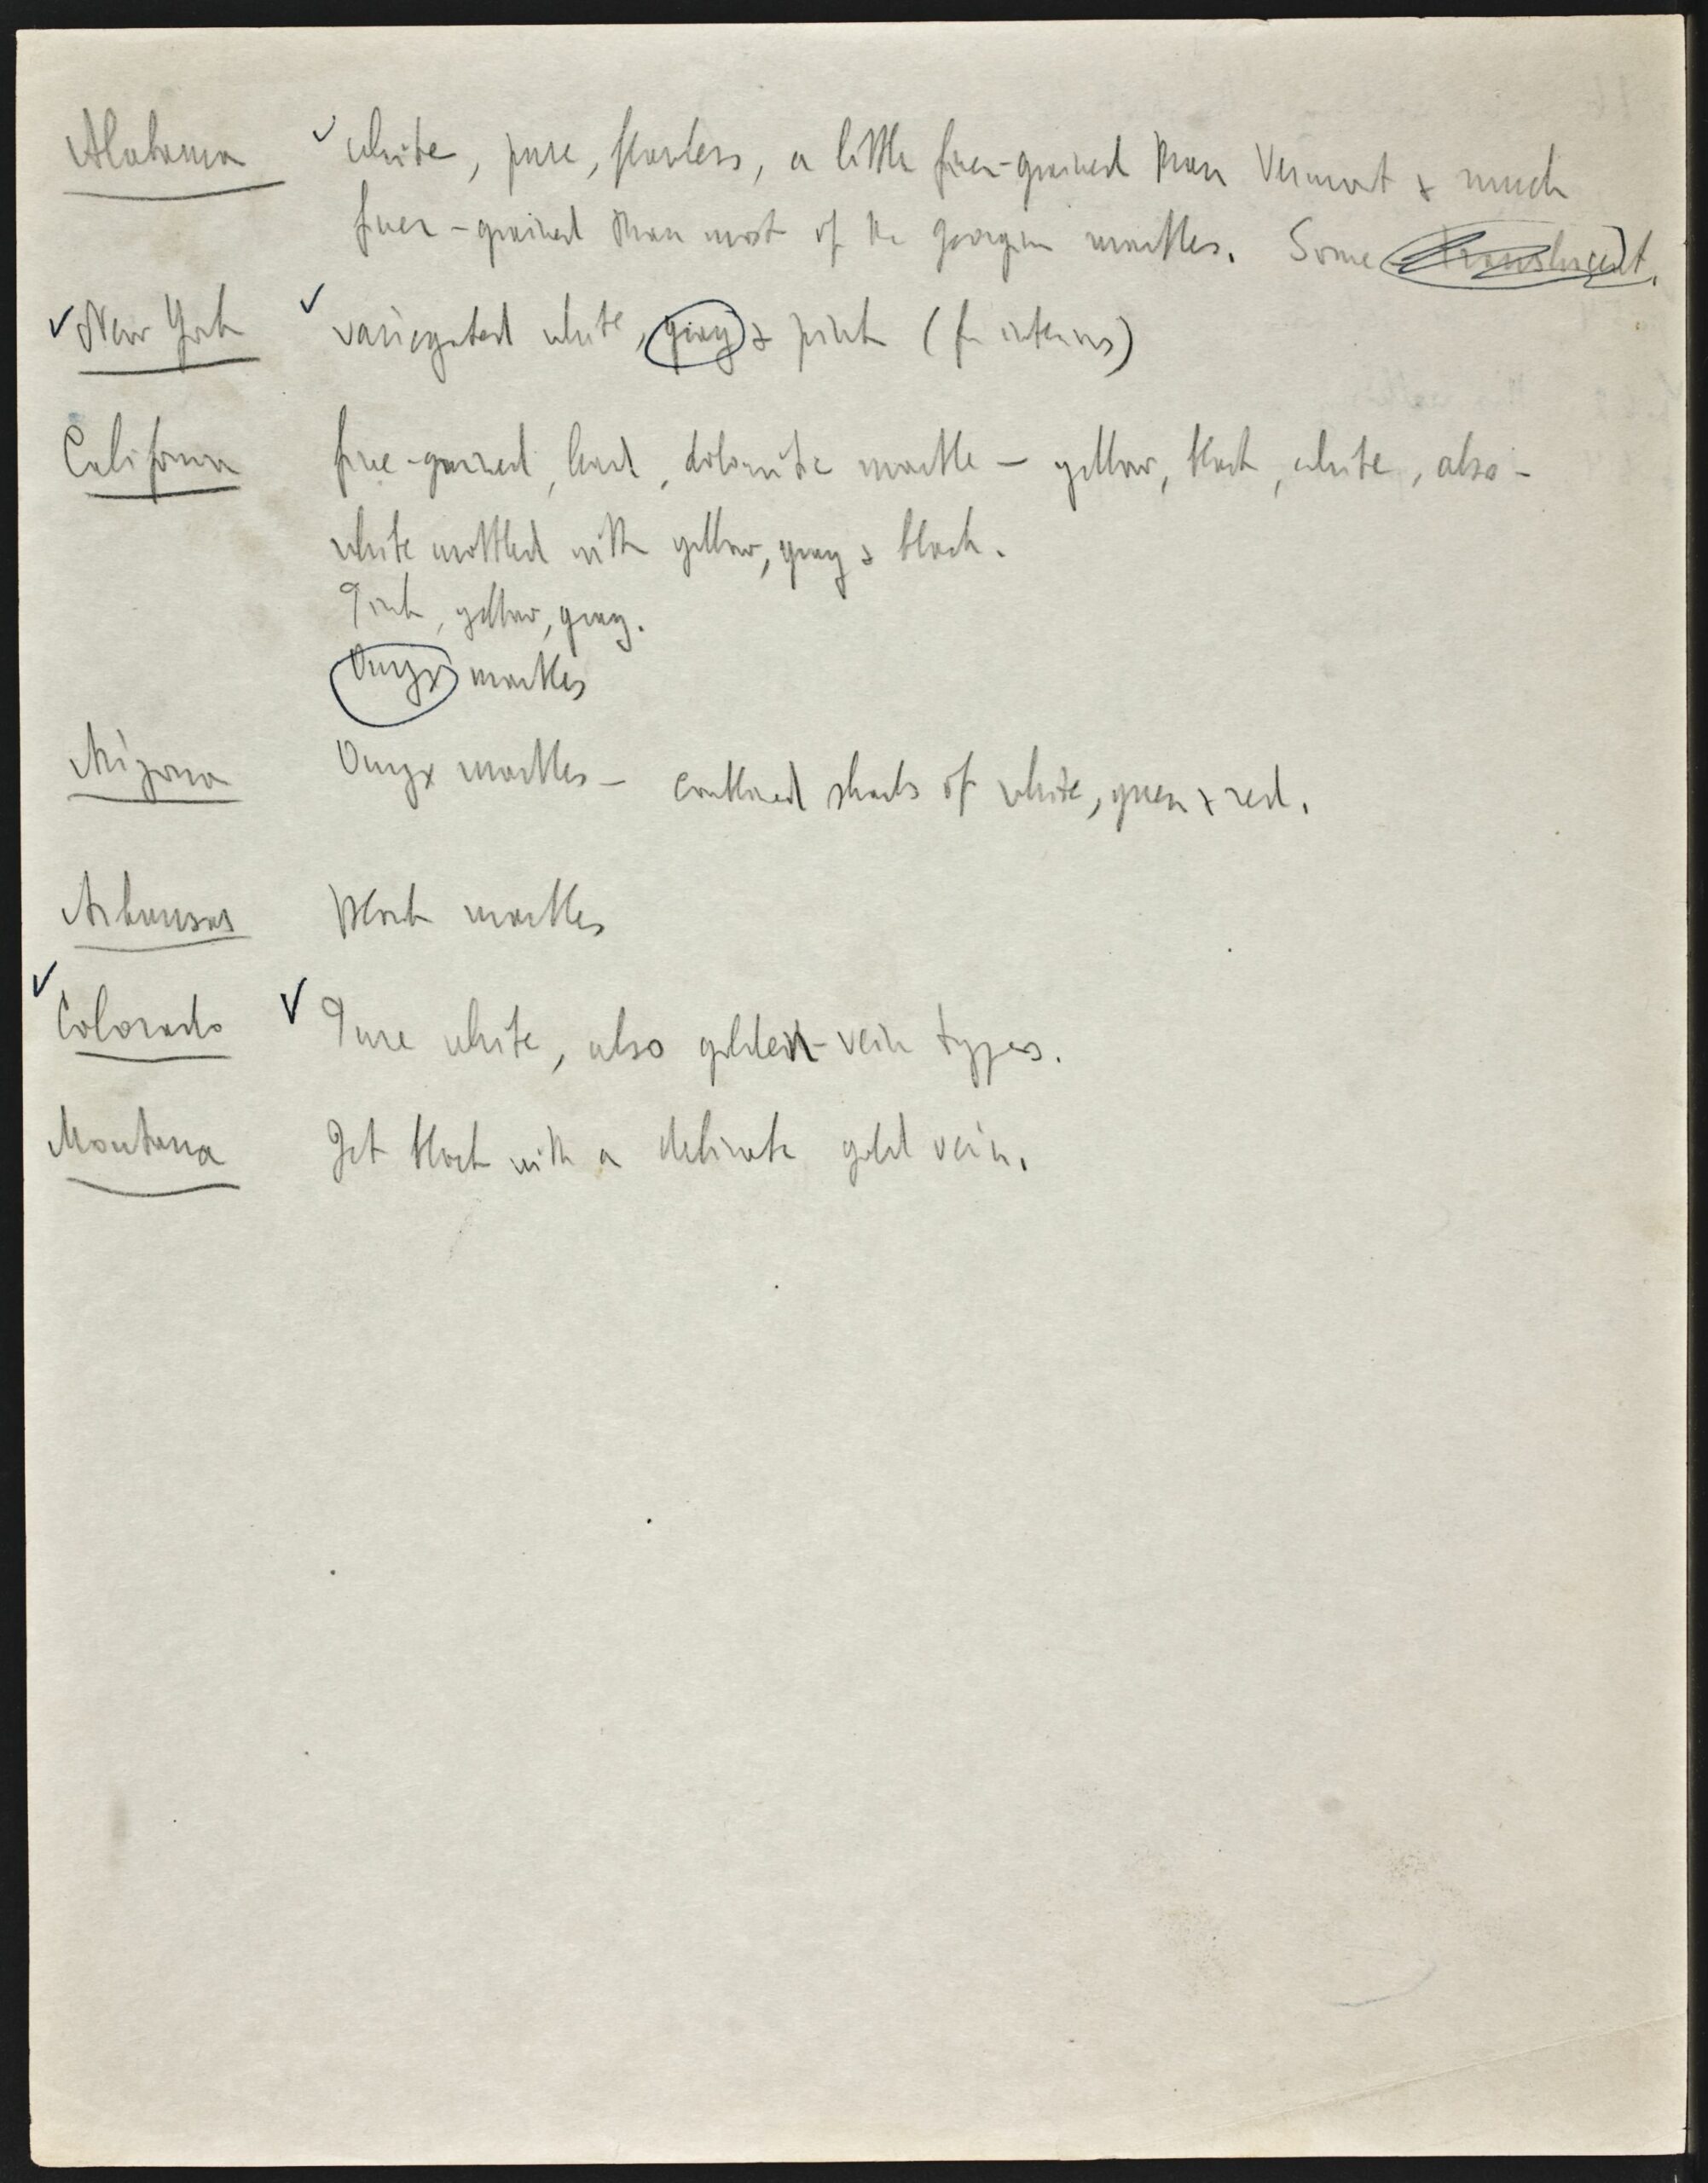 Alabama ✓ white, pure, flawless, a little finer-grained than Vermont & much
finer-grained than most of the Georgia marbles. Some translucent.
✓ New York ✓ variegated white, gray & pink (for interiors)
California fine-grained, hard, dolomitic marble – yellow, black, white, also –
white mottled with yellow, gray & black.
Pink, yellow, gray.
Onyx marbles
Arizona Onyx marbles – combined shades of white, green & red.
Arkansas Black marbles
✓ Colorado ✓ Pure white, also golden-vein types.
Montana Jet black with a delicate gold vein.